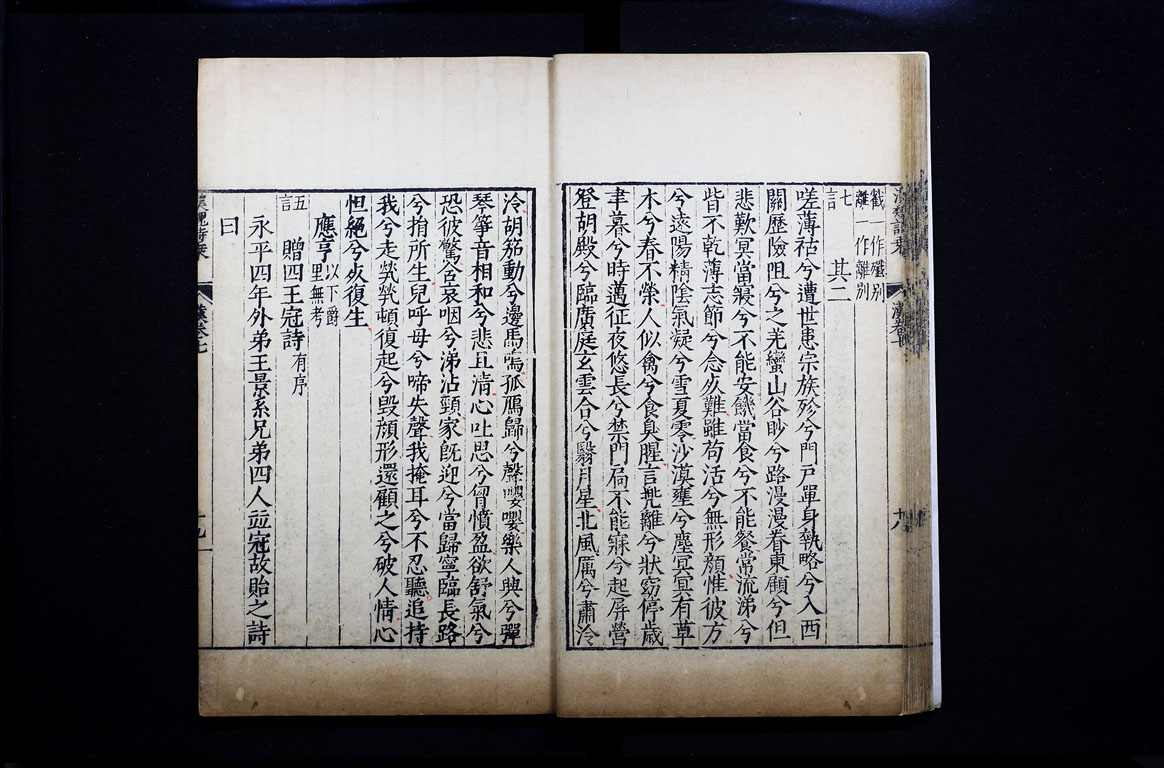 漢魏詩乘 漢卷七 十八
截一作殲別
離一作離別
七言 其二
嗟薄祜兮遭世患宗族殄兮門戶單身執略兮入西
關歷險阻兮之羌蠻山谷眇兮路漫漫眷東顧兮但
悲歎冥當寢兮不能安饑當食兮不能餐常流涕兮
眥不乾薄志節兮念死難雖苟活兮無形顏惟彼方
兮遠陽精陰氣凝兮雪夏零沙漠壅兮塵冥冥有草
木兮春不榮人似禽兮食臭腥言兠離兮狀窈停歲
聿暮兮時邁征夜悠長兮禁門扃不能寐兮起屏營
登胡殿兮臨廣庭玄雲合兮翳月星北風厲兮肅泠
泠胡笳動兮邊馬鳴孤鴈歸兮聲嚶嚶樂人興兮彈
琴箏音相和兮悲且清心吐思兮胷憤盈欲舒氣兮
恐彼驚含哀咽兮涕沾頸家旣迎兮當歸寧臨長路
兮捐所生兒呼母兮啼失聲我掩耳兮不忍聽追持
我兮走煢煢頓復起兮毀顏形還顧之兮破人情心
怛絕兮死復生
應亨 以下爵里無考
五言 贈四王冠詩 有序
永平四年外弟王景系兄弟四人竝冠故貽之詩
曰
漢魏詩乘 漢卷七 十九